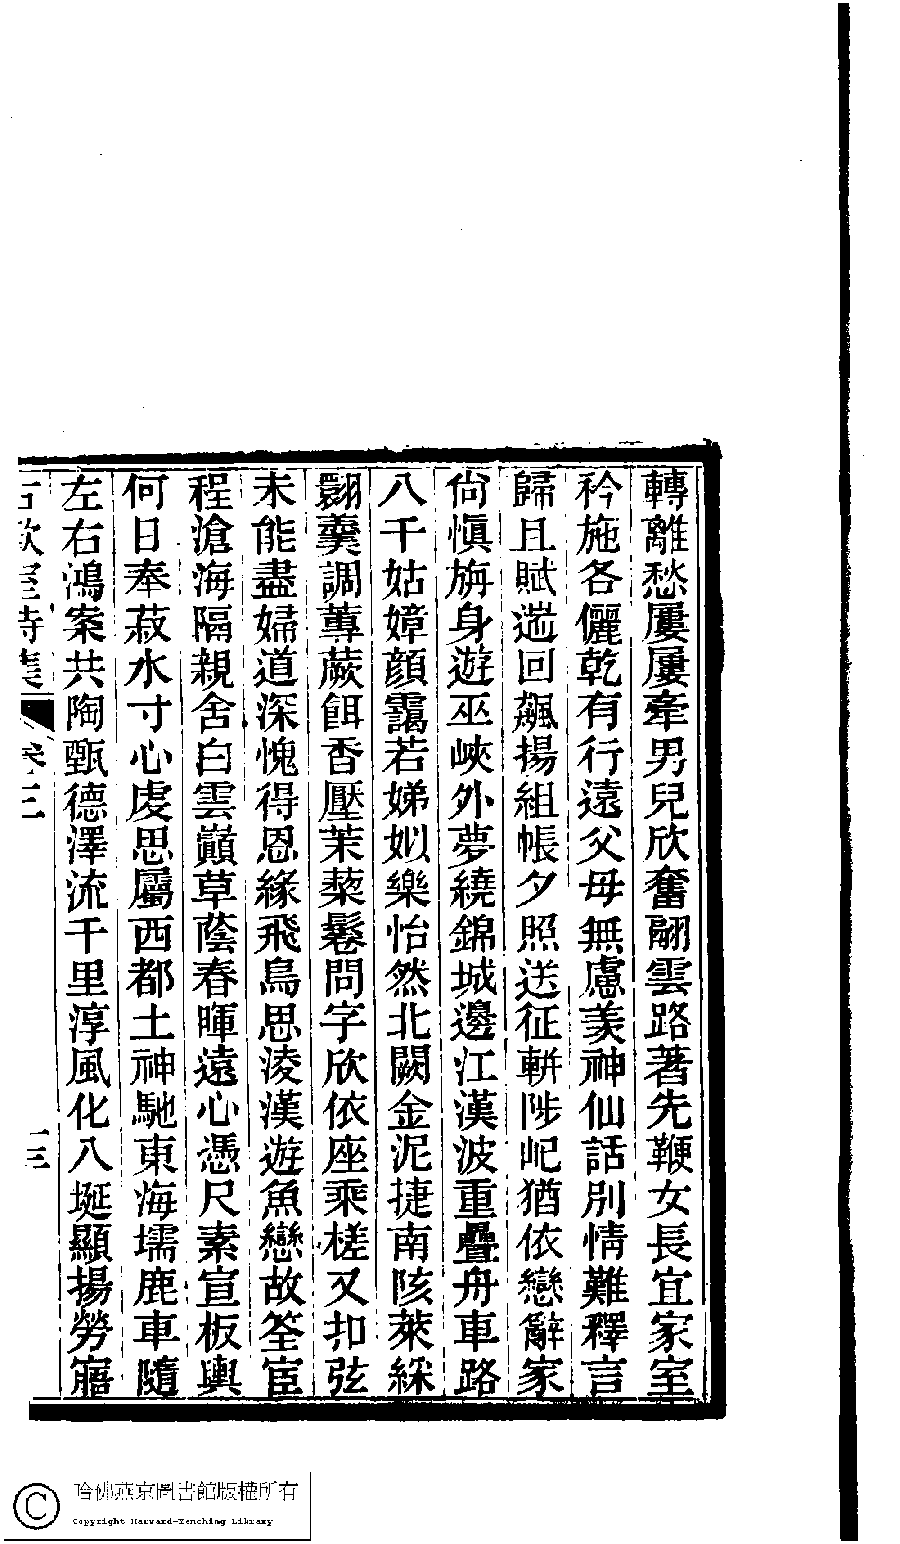 轉離愁屢屢牽男兒欣奮翮雲路著先鞭女長宜家室
衿施各儷乾有行遠父母無慮羨神仙話別情難釋言
歸且賦遄回飆揚組帳夕照送征軿陟屺猶依戀辭家
尙愼旃身遊巫峽外夢繞錦城邊江漢波重疊舟車路
八千姑嫜顔靄若娣姒樂怡然北闕金泥捷南陔萊綵
翾羹調蓴蕨餌香壓茉蔾鬆問字欣依座乘槎又扣弦
未能盡婦道深愧得恩緣飛鳥思淩漢遊魚戀故筌宦
程滄海隔親舍白雲巔草蔭春暉遠心憑尺素宣板輿
何日奉菽水寸心虔思屬西都土神馳東海壖鹿車隨
左右鴻案共陶甄德澤流千里淳風化八埏顯揚勞寤
古歡室詩集 卷三 十三
哈佛燕京圖書館版權所有
Copyright Harvard-Yenching Library